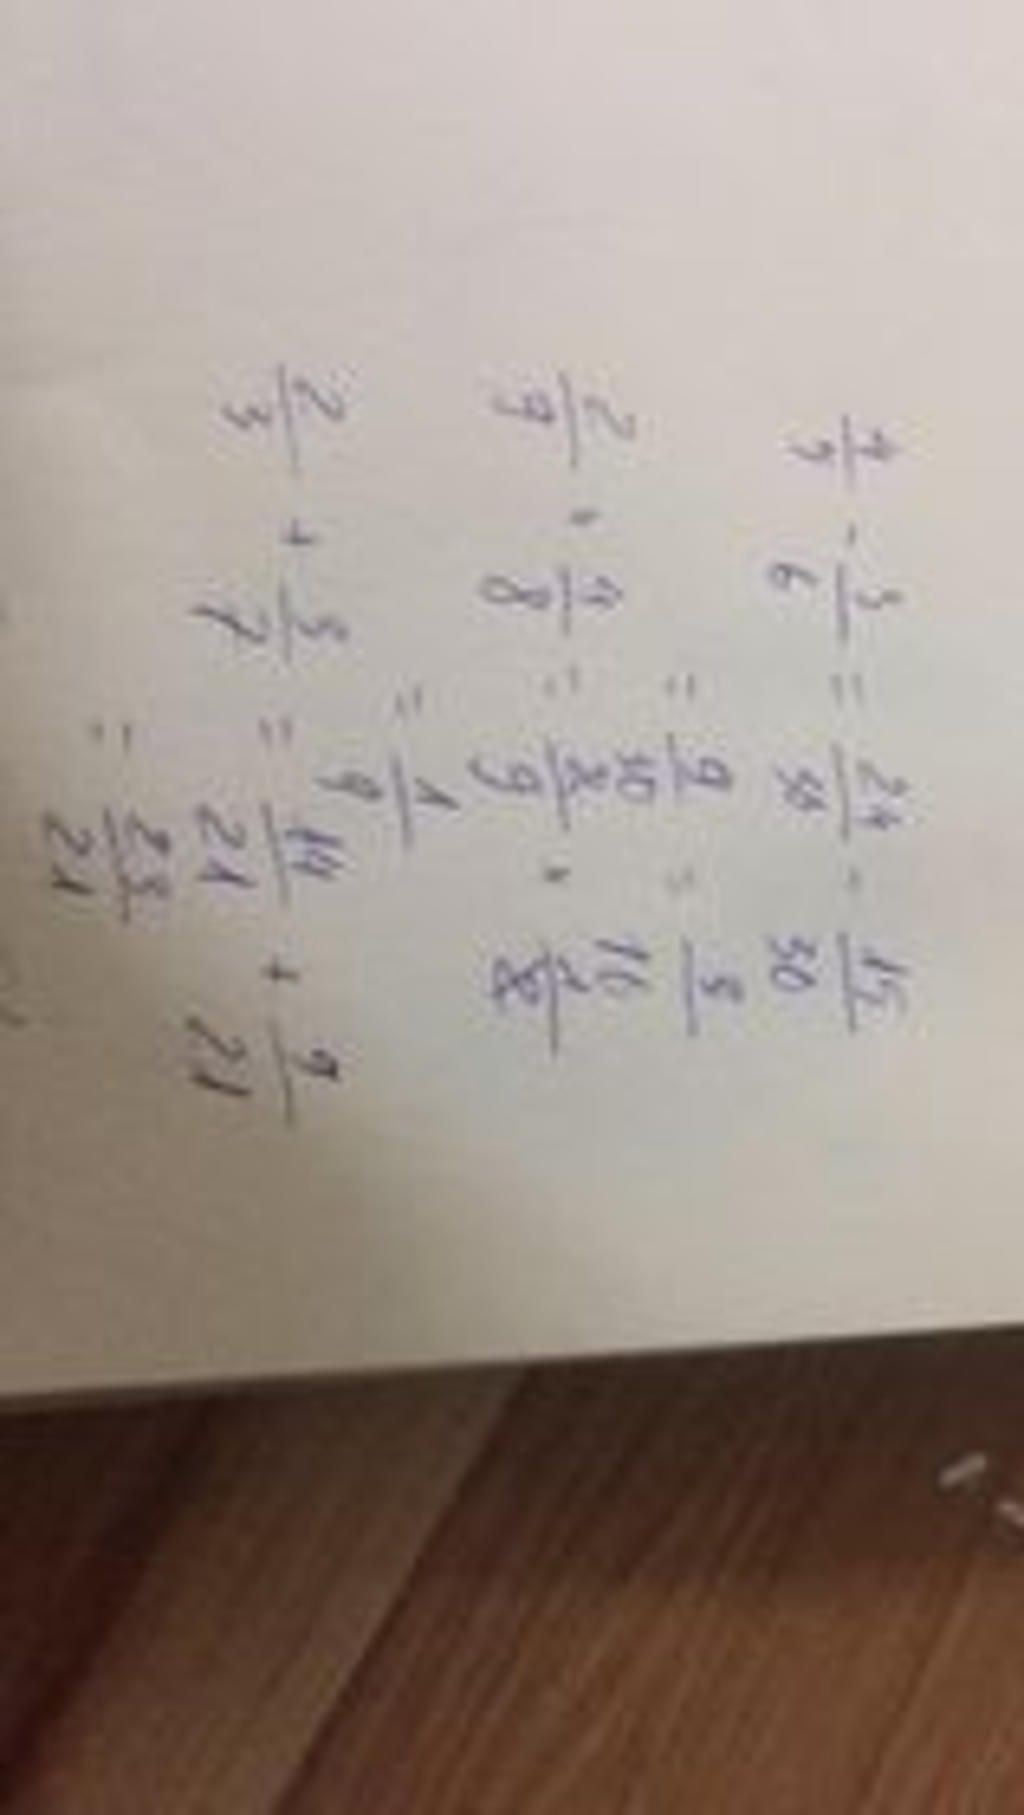 4/5 - 3/6 = 24/30 - 15/30
= 9/30 = 3/10
2/9 · 4/8 = 2/9 ·
= 1/9
2/3 + 3/7 = 14/21 + 9/21
= 23/21